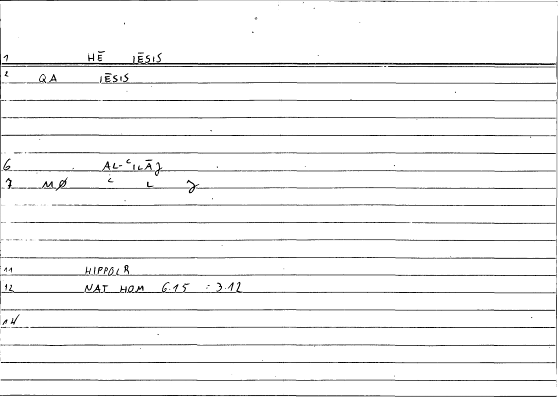 1 HĒ IĒSIS
2 QA IĒSIS
6 AL-ʿILĀJ
7 MØ ʿ L J
11 HIPPOCR
12 NAT HOM 6.15 : 3.12
14